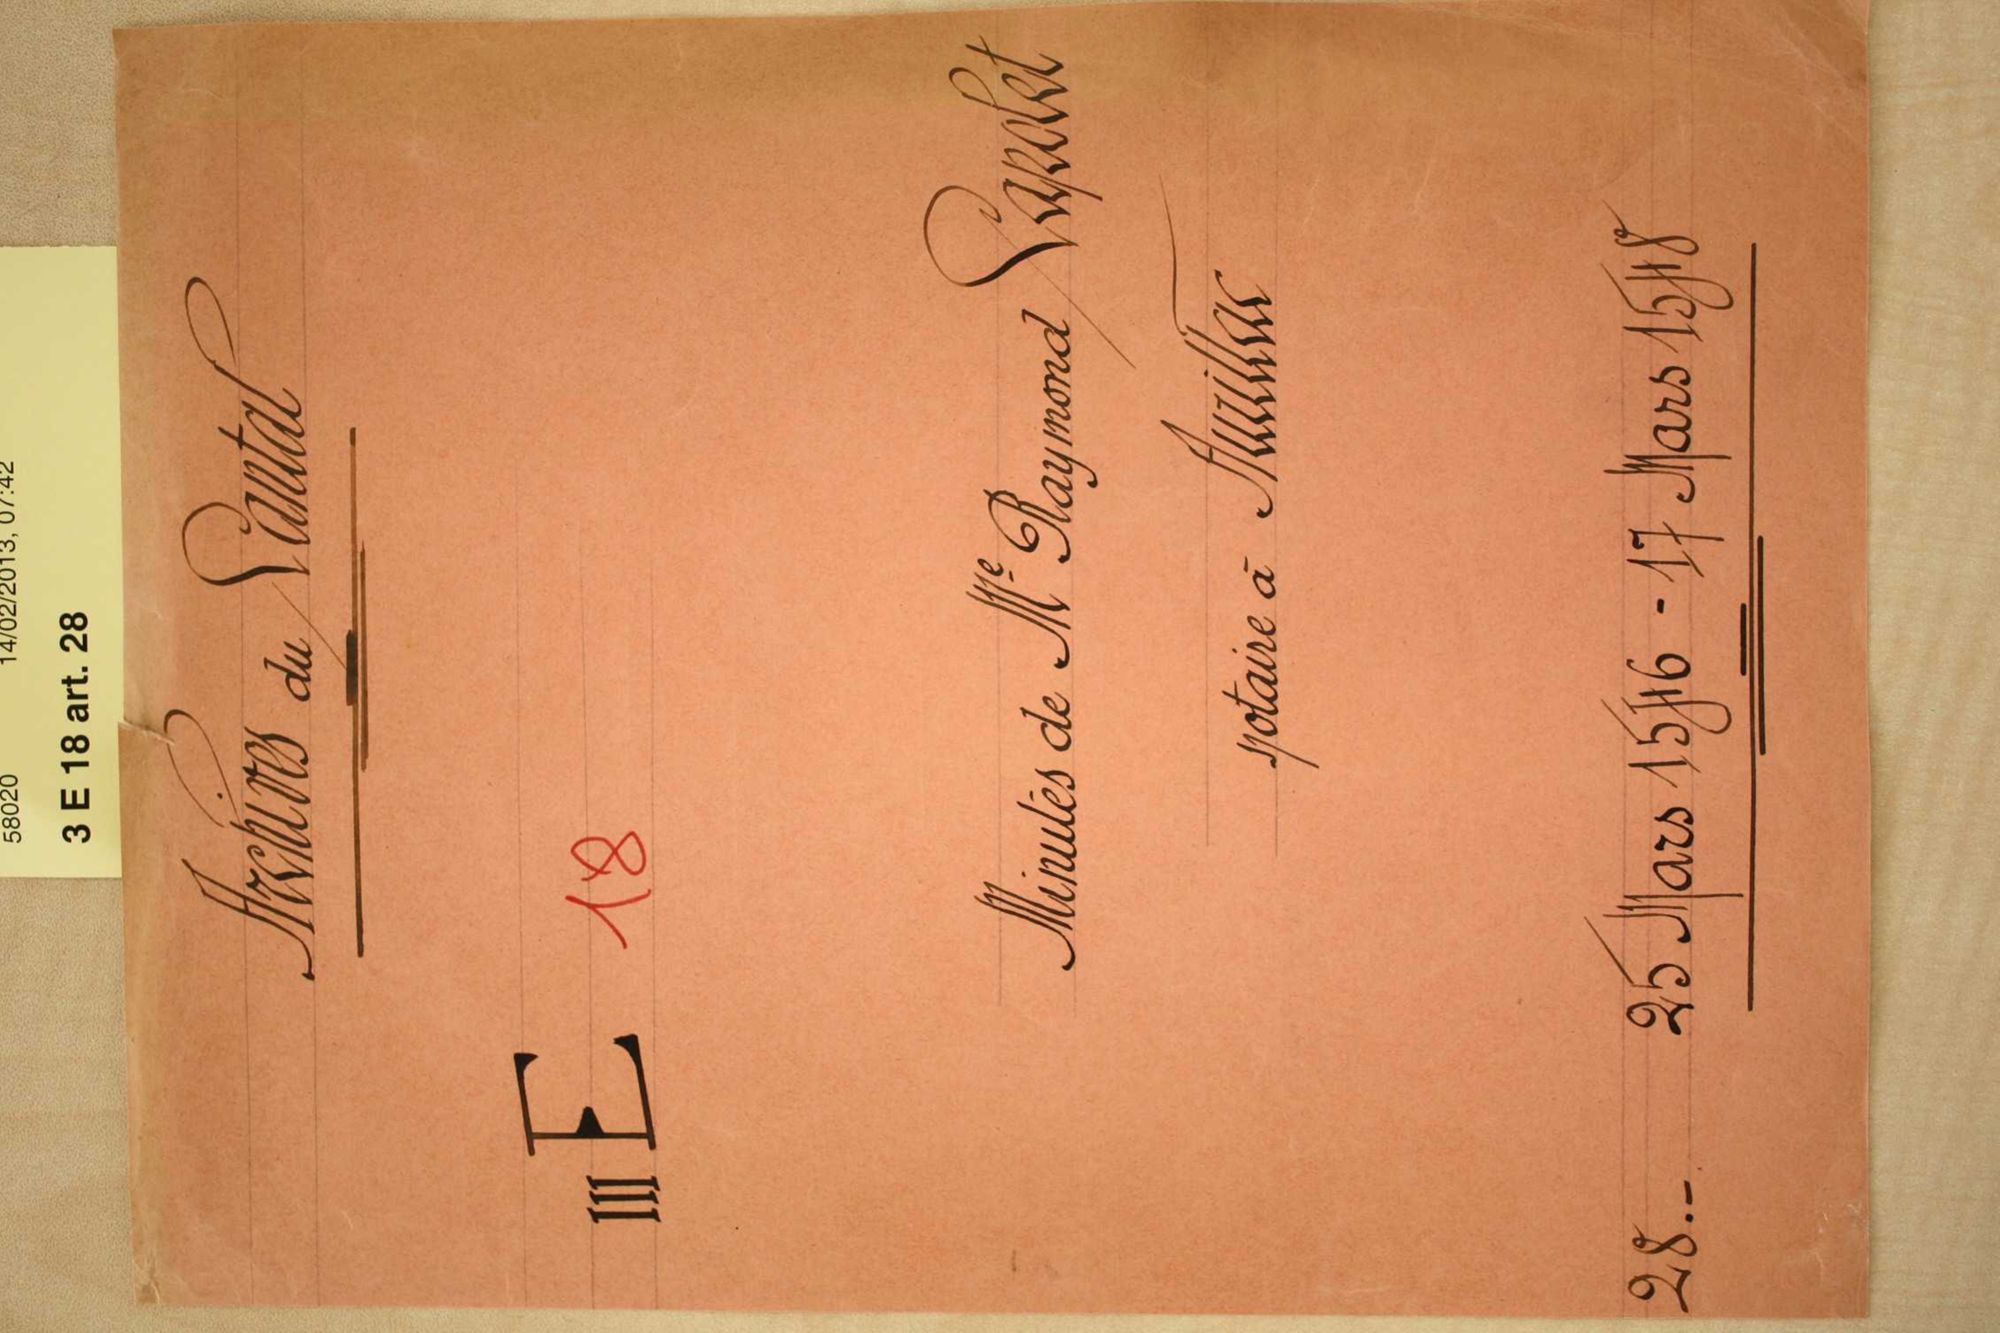 58020 14/02/2013, 07:42
3 E 18 art. 28
Archives du Cantal
III E 18
Minutes de Me Raymond Capolet
notaire à Aurillac
28.- 25 Mars 1546 - 17 Mars 1548